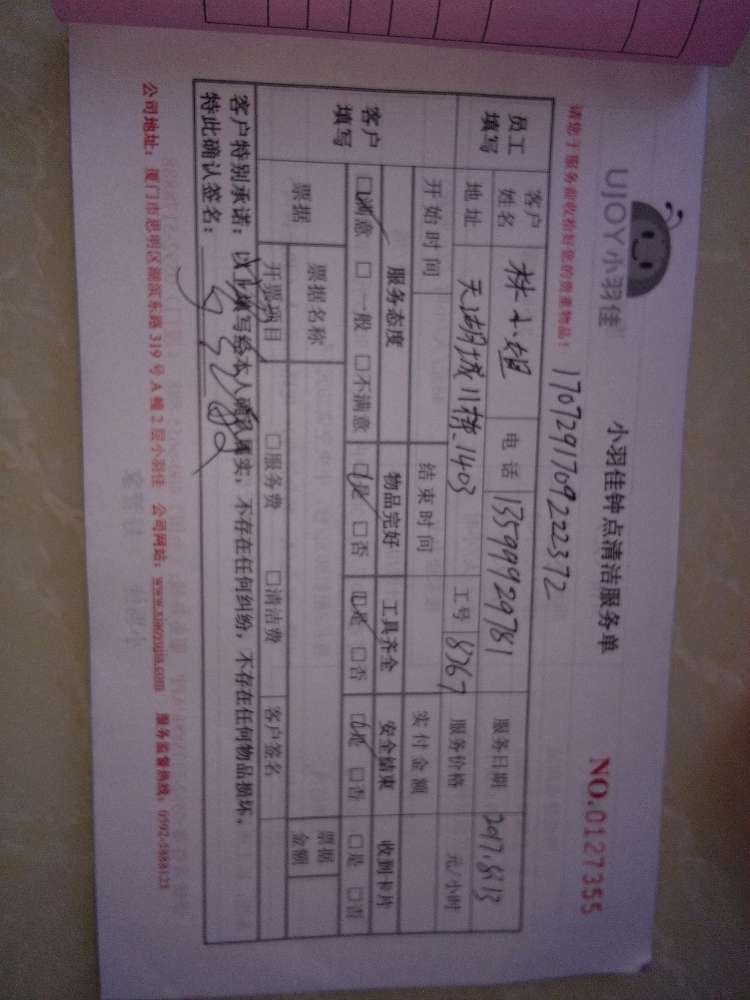 UJOY小羽佳
小羽佳钟点清洁服务单
NO.0127355
请您于服务前收拾好您的贵重物品!
1707291709222372
员工填写
客户姓名 林小姐 电话 13599929781 服务日期 2017.8.13
地址 天湖城11栋.1403 工号 8767 服务价格 元/小时
开始时间 结束时间 实付金额
客户填写
服务态度 物品完好 工具齐全 安全结束 收到卡片
□满意 □一般 □不满意 □是 □否 □是 □否 □是 □否 □是 □否
票据 票据名称 票据金额
开票项目 □服务费 □清洁费 客户签名
客户特别承诺:以上填写经本人确认属实,不存在任何纠纷,不存在任何物品损坏,
特此确认签名:
公司地址:厦门市思明区湖滨东路319号A幢2层小羽佳 公司网站:www.xiaoyujia.com 服务监督热线:0592-5888123